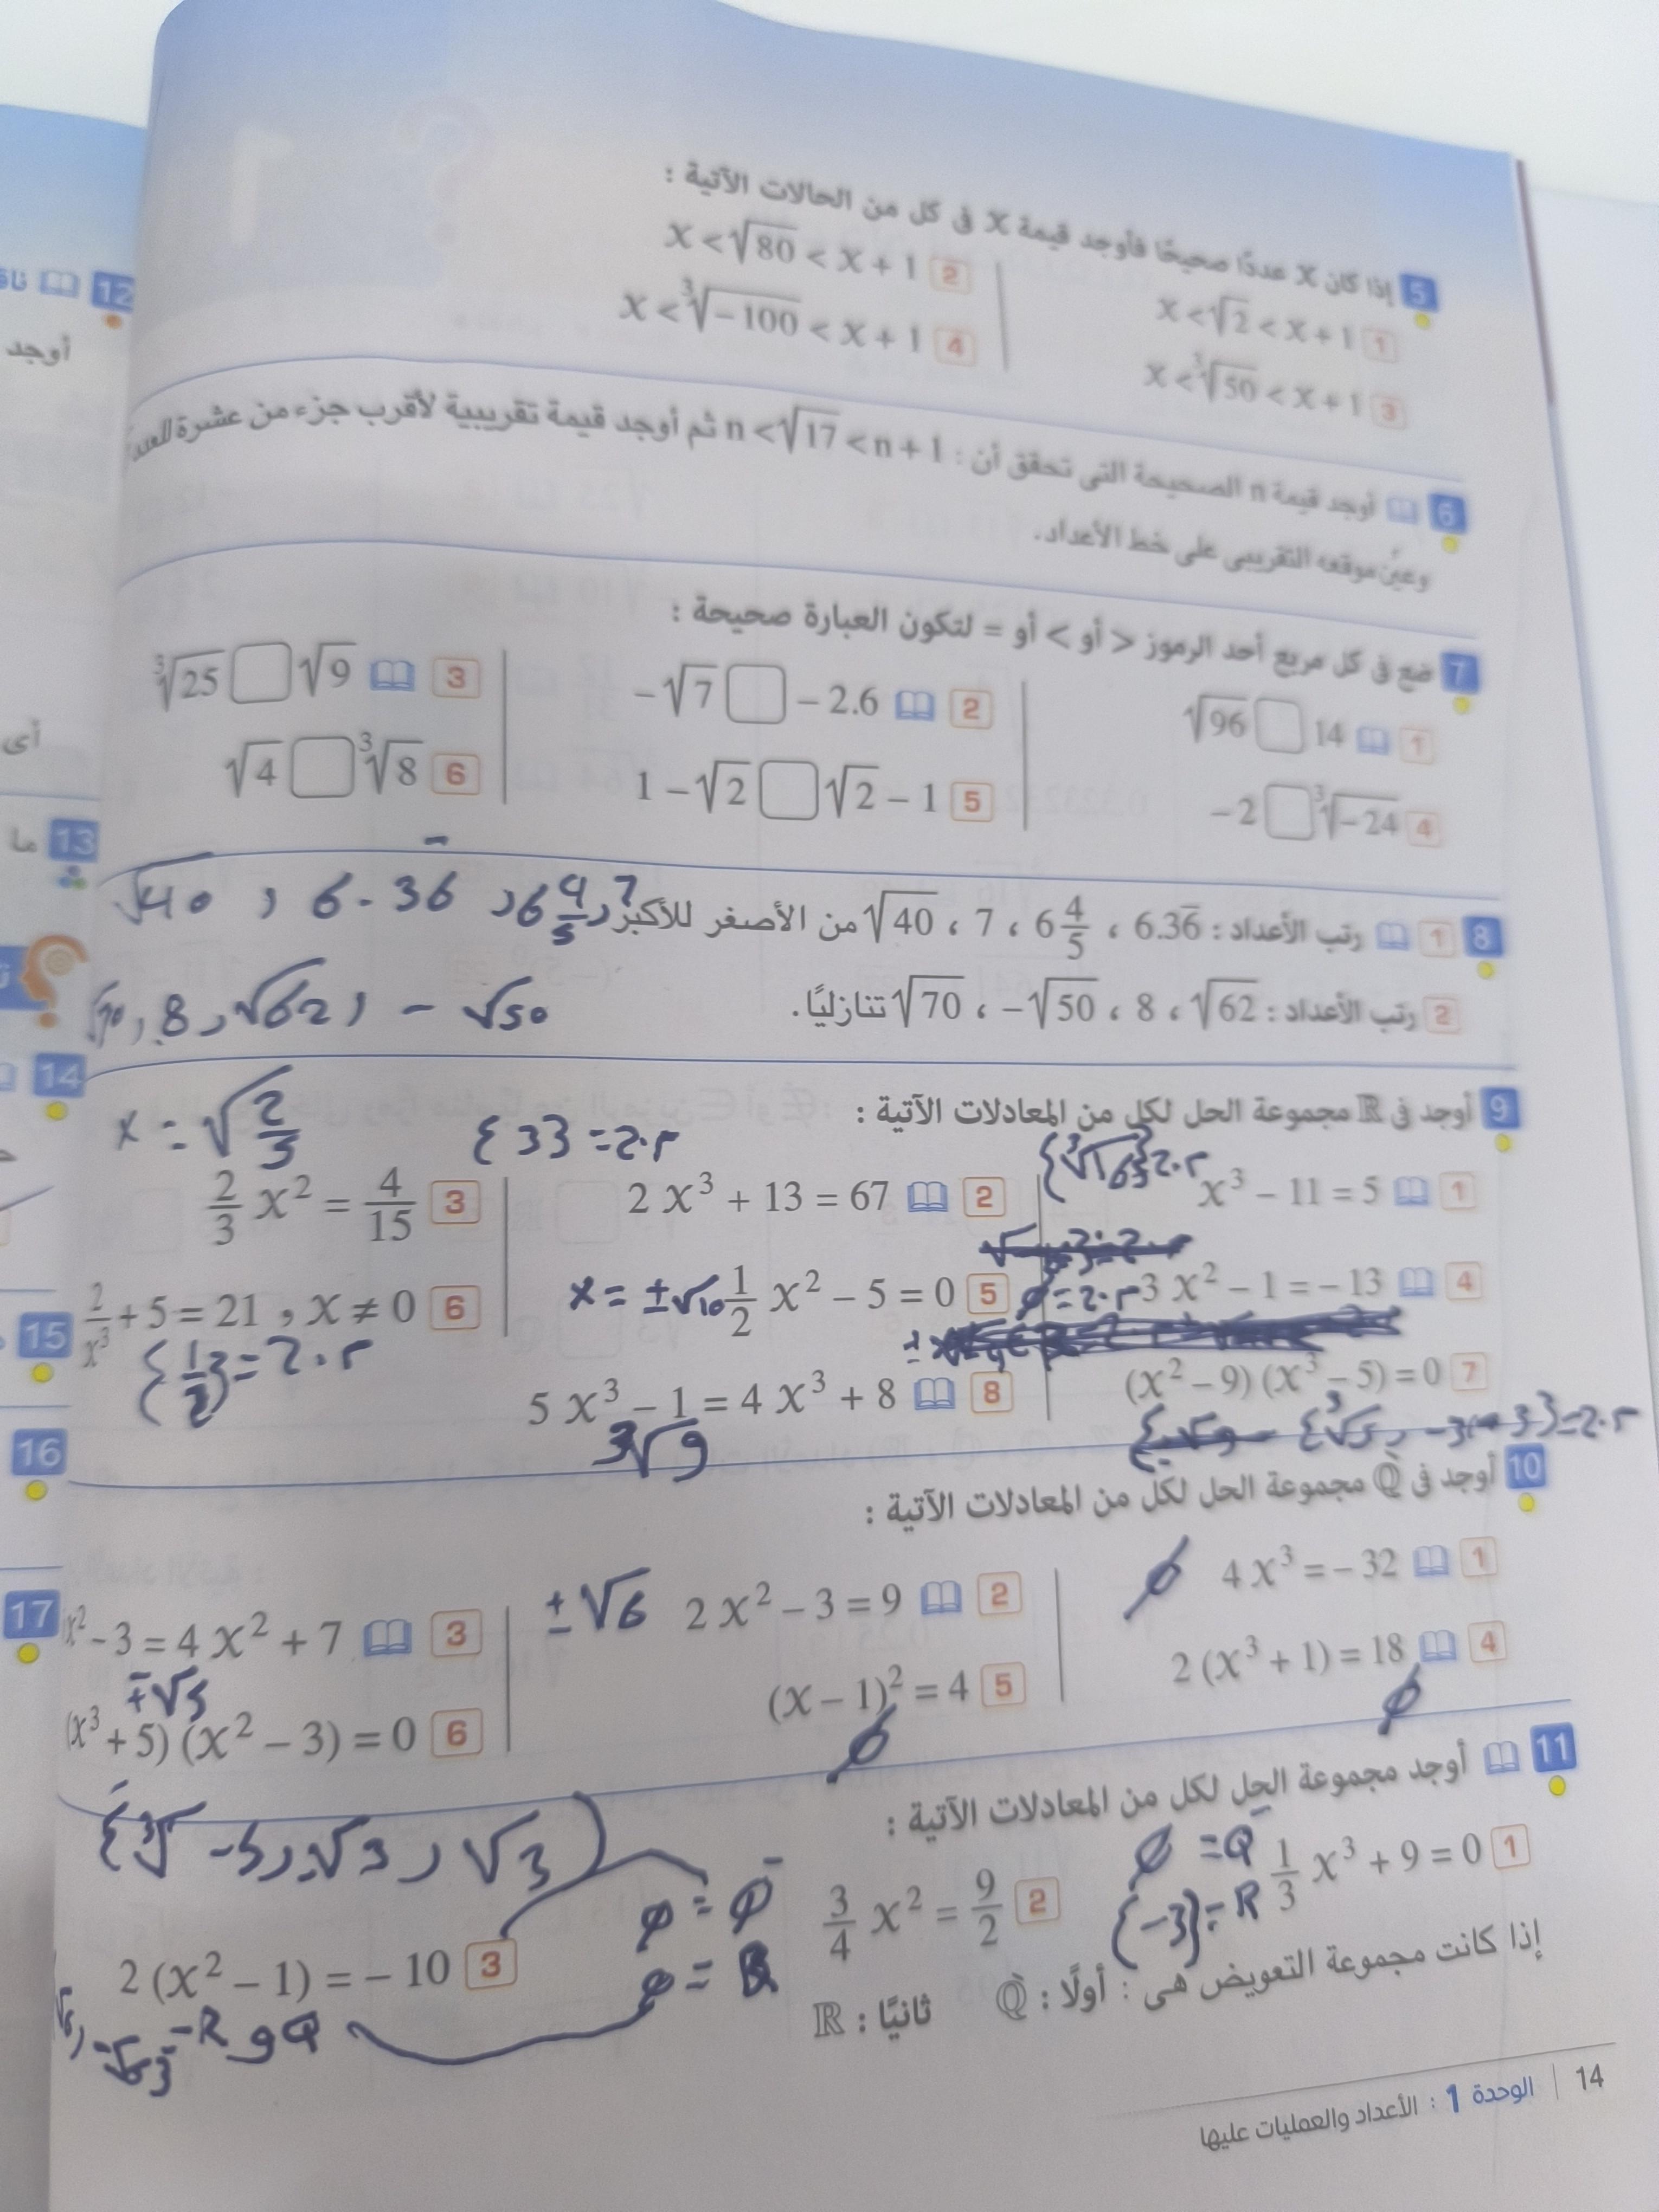 5 إذا كان x عددًا صحيحًا فأوجد قيمة x فى كل من الحالات الآتية :
1 x < √2 < x + 1
2 x < √80 < x + 1
3 x < ³√50 < x + 1
4 x < ³√-100 < x + 1
6 أوجد قيمة n الصحيحة التى تحقق أن : n < √17 < n + 1 ثم أوجد قيمة تقريبية لأقرب جزء من عشرة للعدد
وعيِّن موقعه التقريبى على خط الأعداد.
7 ضع فى كل مربع أحد الرموز < أو > أو = لتكون العبارة صحيحة :
1 √96 □ 14
2 -√7 □ - 2.6
3 ³√25 □ √9
4 - 2 □ ³√-24
5 1 - √2 □ √2 - 1
6 √4 □ ³√8
8 1 رتب الأعداد : 6.36̅ ، 6 4/5 ، 7 ، √40 من الأصغر للأكبر
√40 , 6.36 , 6 4/5 , 7
2 رتب الأعداد : √62 ، 8 ، -√50 ، √70 تنازليًا.
√70 , 8 , √62 , - √50
9 أوجد فى ℝ مجموعة الحل لكل من المعادلات الآتية :
1 x³ - 11 = 5
{³√16} = م.ح
2 2 x³ + 13 = 67
{3} = م.ح
3 2/3 x² = 4/15
x = √2/5
4 3 x² - 1 = - 13
ϕ = م.ح
5 1/2 x² - 5 = 0
x = ±√10
6 2/x³ + 5 = 21 , x ≠ 0
{1/2} = م.ح
7 (x² - 9) (x³ - 5) = 0
{³√5, -3, 3} = م.ح
8 5 x³ - 1 = 4 x³ + 8
³√9
10 أوجد فى ℚ̀ مجموعة الحل لكل من المعادلات الآتية :
1 4 x³ = - 32
ϕ
2 2 x² - 3 = 9
±√6
3 x² - 3 = 4 x² + 7
4 2 (x³ + 1) = 18
ϕ
5 (x - 1)² = 4
ϕ
6 (x³ + 5) (x² - 3) = 0
11 أوجد مجموعة الحل لكل من المعادلات الآتية :
1 1/3 x³ + 9 = 0
ϕ = Q
{-3} = R
2 3/4 x² = 9/2
3 2 (x² - 1) = - 10
إذا كانت مجموعة التعويض هى : أولًا : ℚ̀ ثانيًا : ℝ
14 | الوحدة 1 : الأعداد والعمليات عليها
12
أوجد
أى
13 ما
14
15
16
17